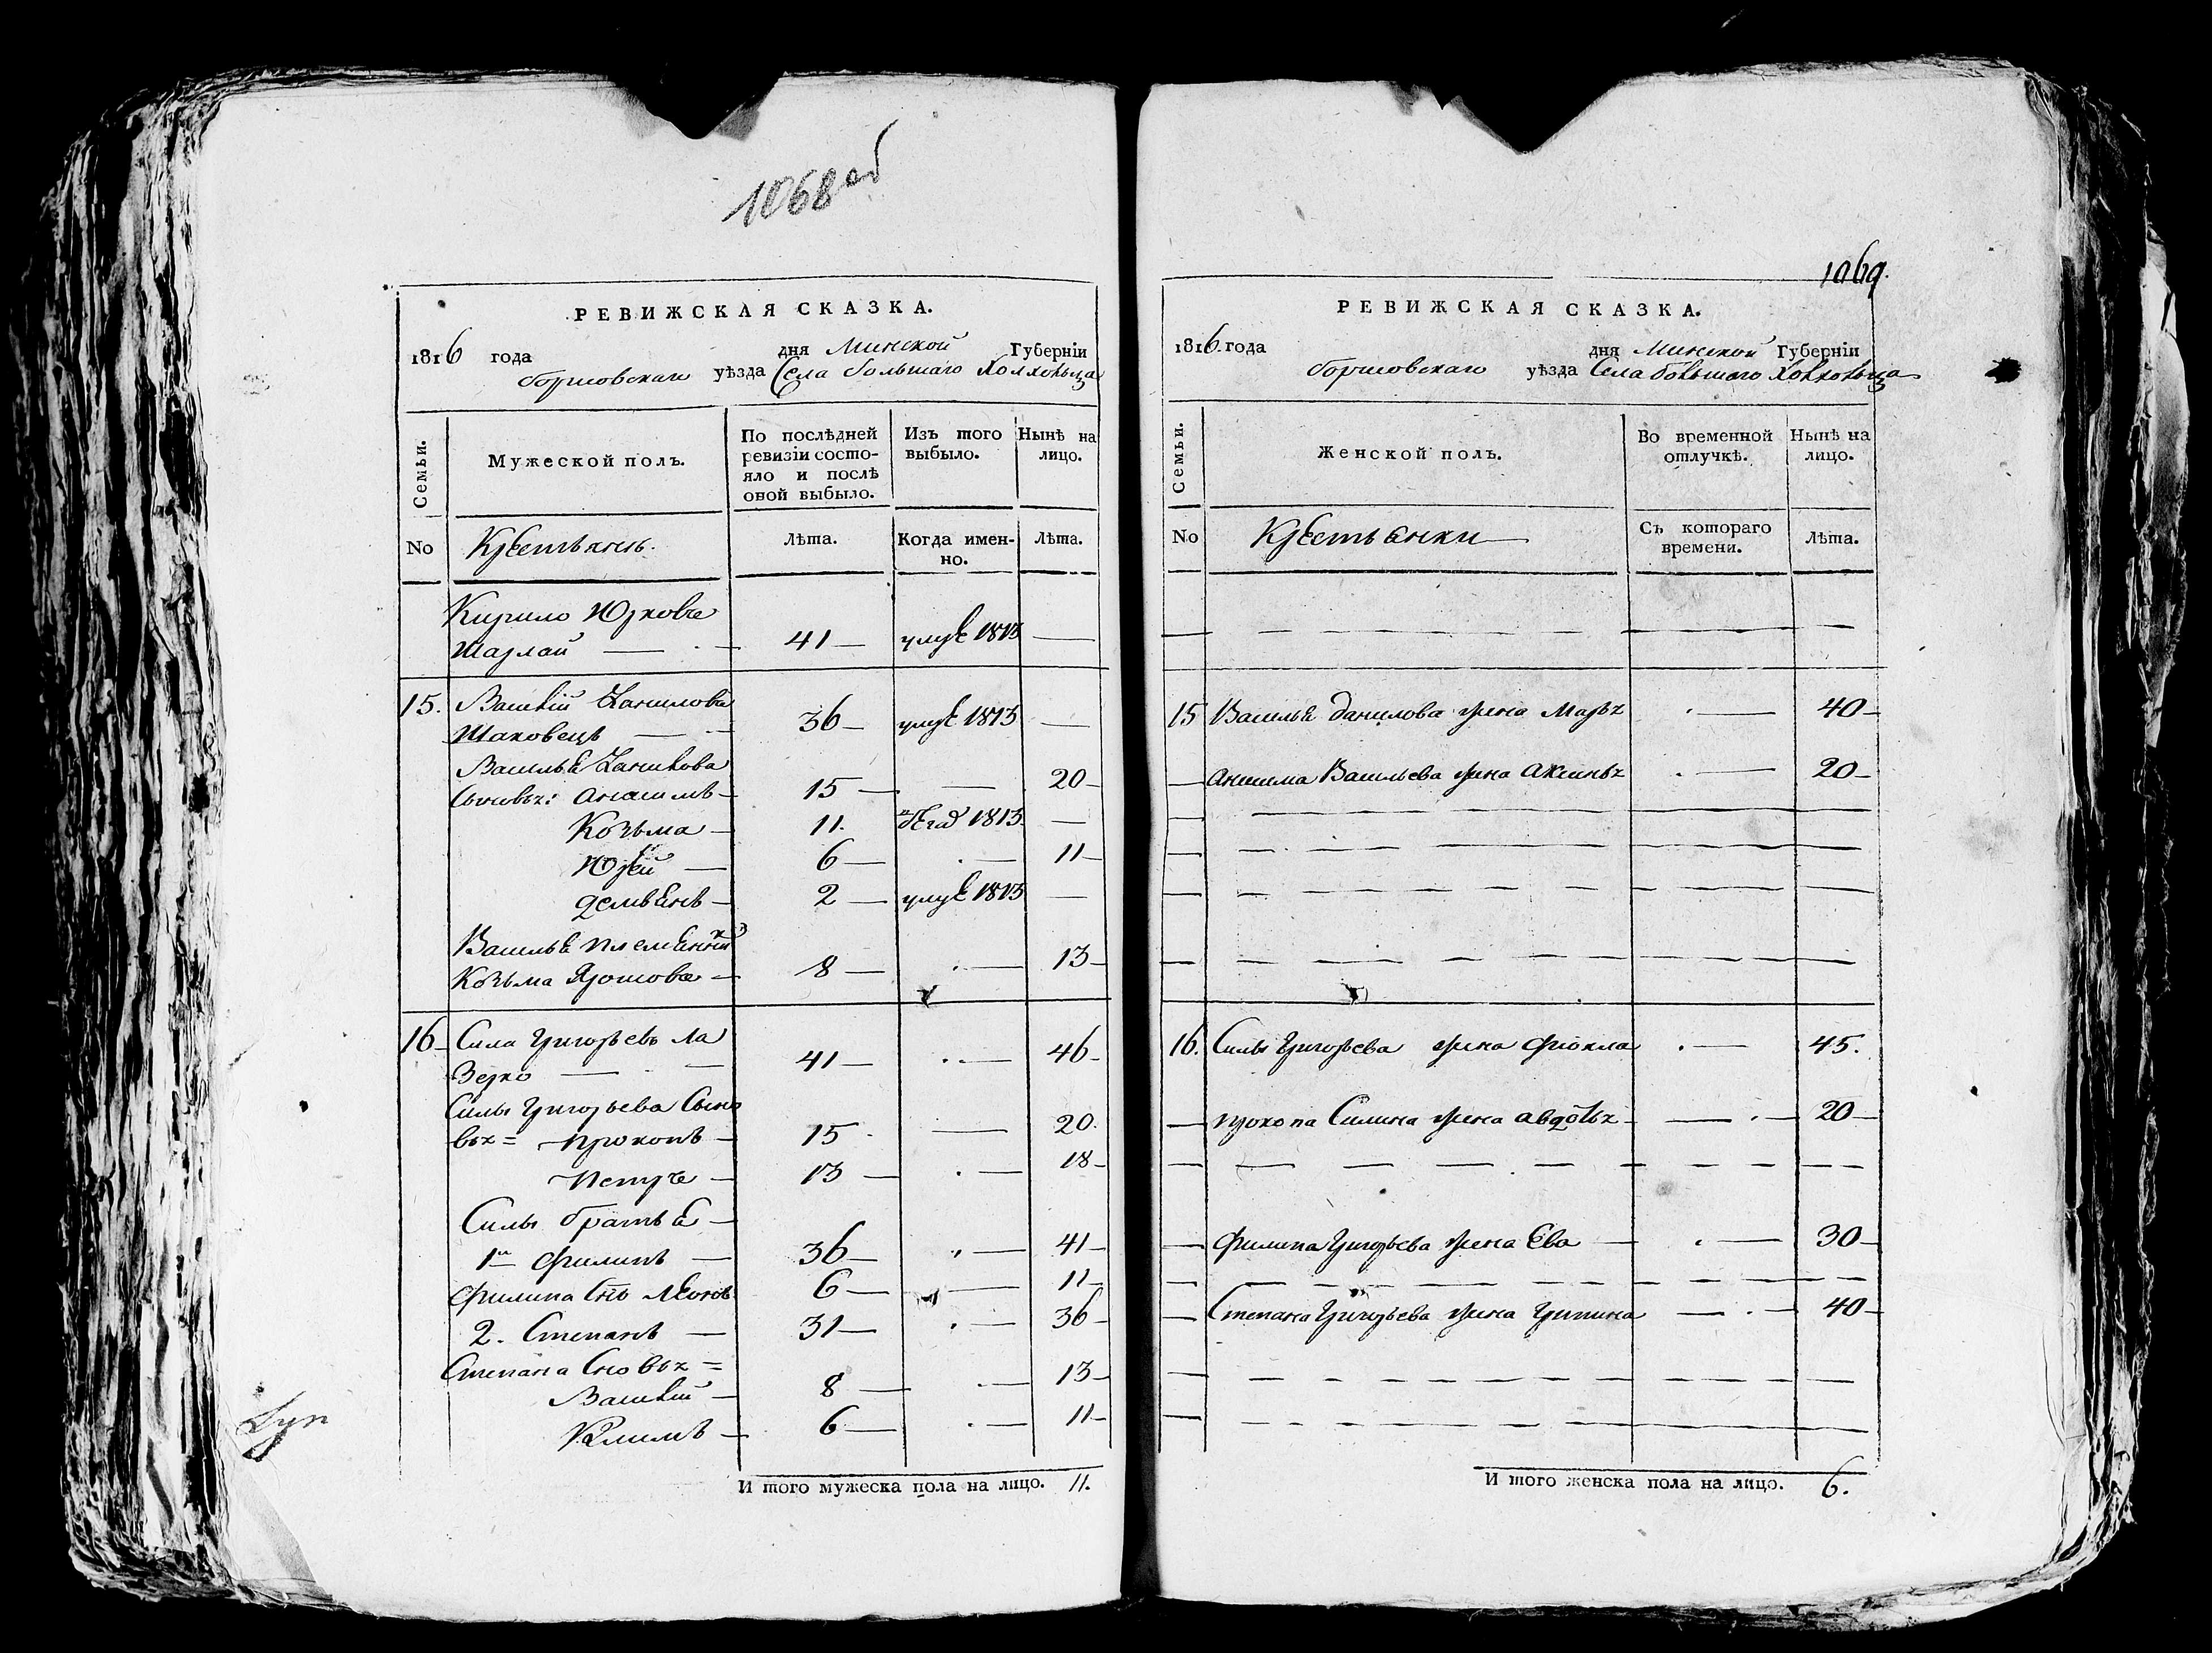 1068 об
РЕВИЖСКАЯ СКАЗКА.
1816 года дня Минской Губерніи
борисовскаго уѣзда Села большаго Холхольца
Семьи.
Мужеской полъ.
По послѣдней ревизіи состо-
яло и послѣ
оной выбыло.
Изъ того
выбыло.
Нынѣ на
лицо.
No
Крестьянъ.
Лѣта.
Когда имен-
но.
Лѣта.
Кирило Юрковъ
Шарлай — 41 — умре 1813 —
15. Василій Даниловъ
Шаковецъ — 36 — умре 1813 —
Василья Данилова
Сыновьх: Анисимъ — 15 — — 20 —
Козьма — 11. 1813 —
Юрей — 6 — . — 11 —
Демьянъ — 2 — умре 1813 —
Василья племянникъ
Козьма Ярошовъ — 8 — . — 13 —
16 Сила Григорьевъ Ла
Зерко — 41 — . — 46 —
Силы Григорьева Сыно
вьх = Прокопъ — 15 . — 20.
Петръ — 13 — . — 18 —
Силы братья —
1й Филипъ — 36 — . — 41 —
Филипа Снъ Леонъ 6 — — 11 —
2. Степанъ — 31 — . — 36 —
Степана Сновьх =
Василій — 8 — . — 13 —
Климъ — 6 — . — 11 —
И того мужеска пола на лицо. 11.
1069.
РЕВИЖСКАЯ СКАЗКА.
1816. года дня Минской Губерніи
борисовскаго уѣзда Села большаго Холхольца
Семьи.
Женской полъ.
Во временной
отлучкѣ.
Нынѣ на
лицо.
No
Крестьянки
Съ котораго
времени.
Лѣта.
15 Василья Данилова жена Марья . — 40 —
— Анисима Васильева жена Аксинья . — 20 —
16. Силы Григорьева жена Фіокла . — 45.
— Прокопа Силина жена Авдотья — . — 20 —
— Филипа Григорьева жена Ева — . — 30 —
— Степана Григорьева жена — . — 40 —
И того женска пола на лицо. 6.